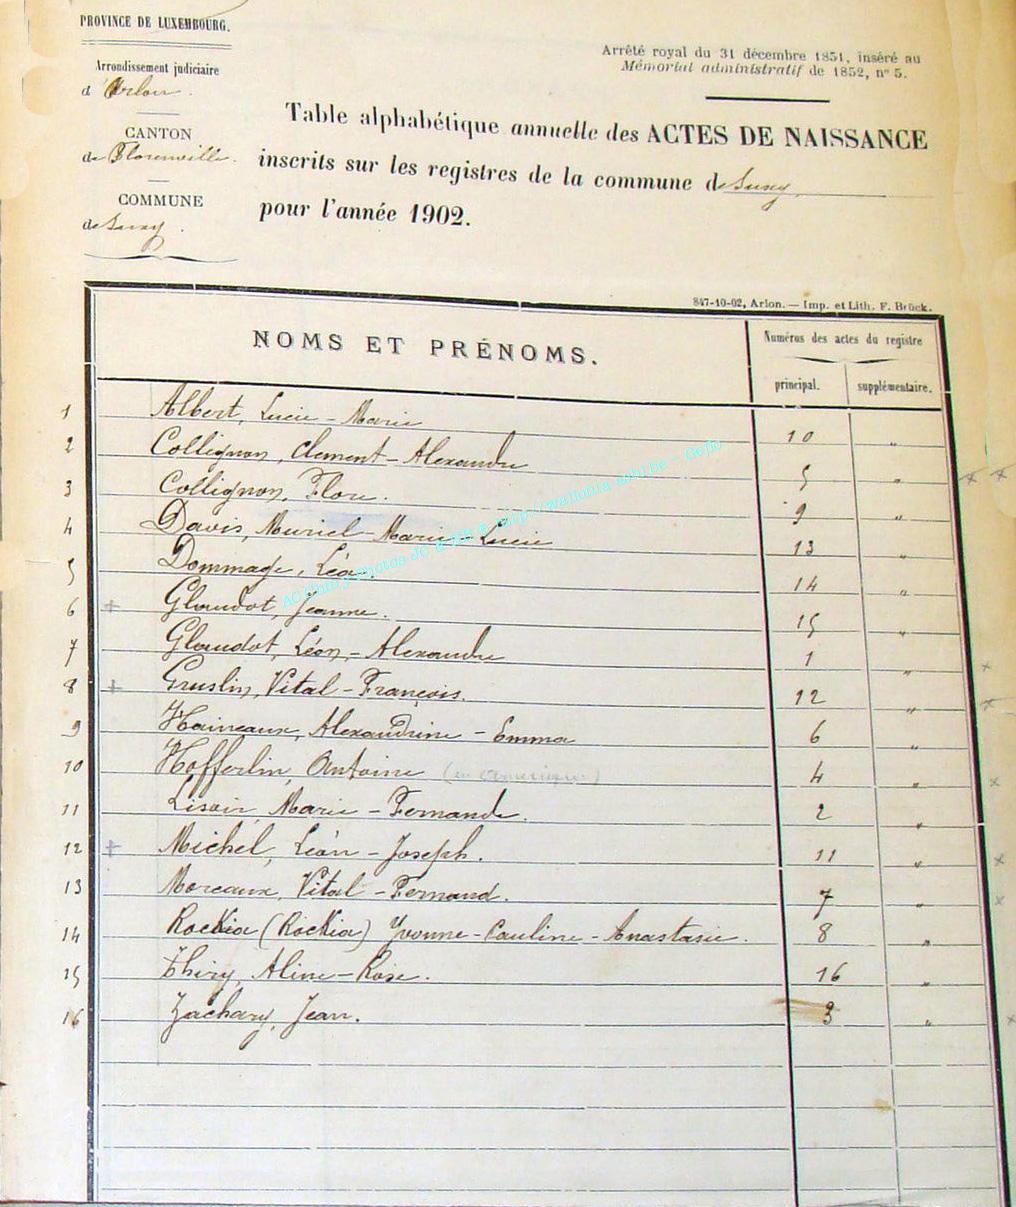 PROVINCE DE LUXEMBOURG.
Arrondissement judiciaire
d'Arlon.
CANTON
de Florenville.
COMMUNE
de Suxy.
Arrêté royal du 31 décembre 1851, inséré au
Mémorial administratif de 1852, n° 5.
Table alphabétique annuelle des ACTES DE NAISSANCE
inscrits sur les registres de la commune de Suxy,
pour l'année 1902.
847-10-02, Arlon. — Imp. et Lith. F. Brück.
NOMS ET PRÉNOMS.
Numéros des actes du registre
principal. supplémentaire.
1 Albert, Lucie - Marie 10 "
2 Collignon, Clement - Alexandre 5 "
3 Collignon, Flore. 9 "
4 Davis, Muriel - Marie - Lucie 13 "
5 Dommage, Léon 14 "
6 + Glaudot, Jeanne. 15 "
7 Glaudot, Léon - Alexandre 1 "
8 + Gruslin, Vital - François. 12 "
9 Haineaux, Alexandrine - Emma 6 "
10 Hofferlin, Antoine 4 "
11 Lisoir, Marie - Fernande. 2 "
12 + Michel, Léon - Joseph. 11 "
13 Moreaux, Vital - Fernand. 7 "
14 Rockia (Rockia) Yvonne - Pauline - Anastasie. 8 "
15 Thiry, Aline - Rose. 16 "
16 Zachary, Jean. 3 "